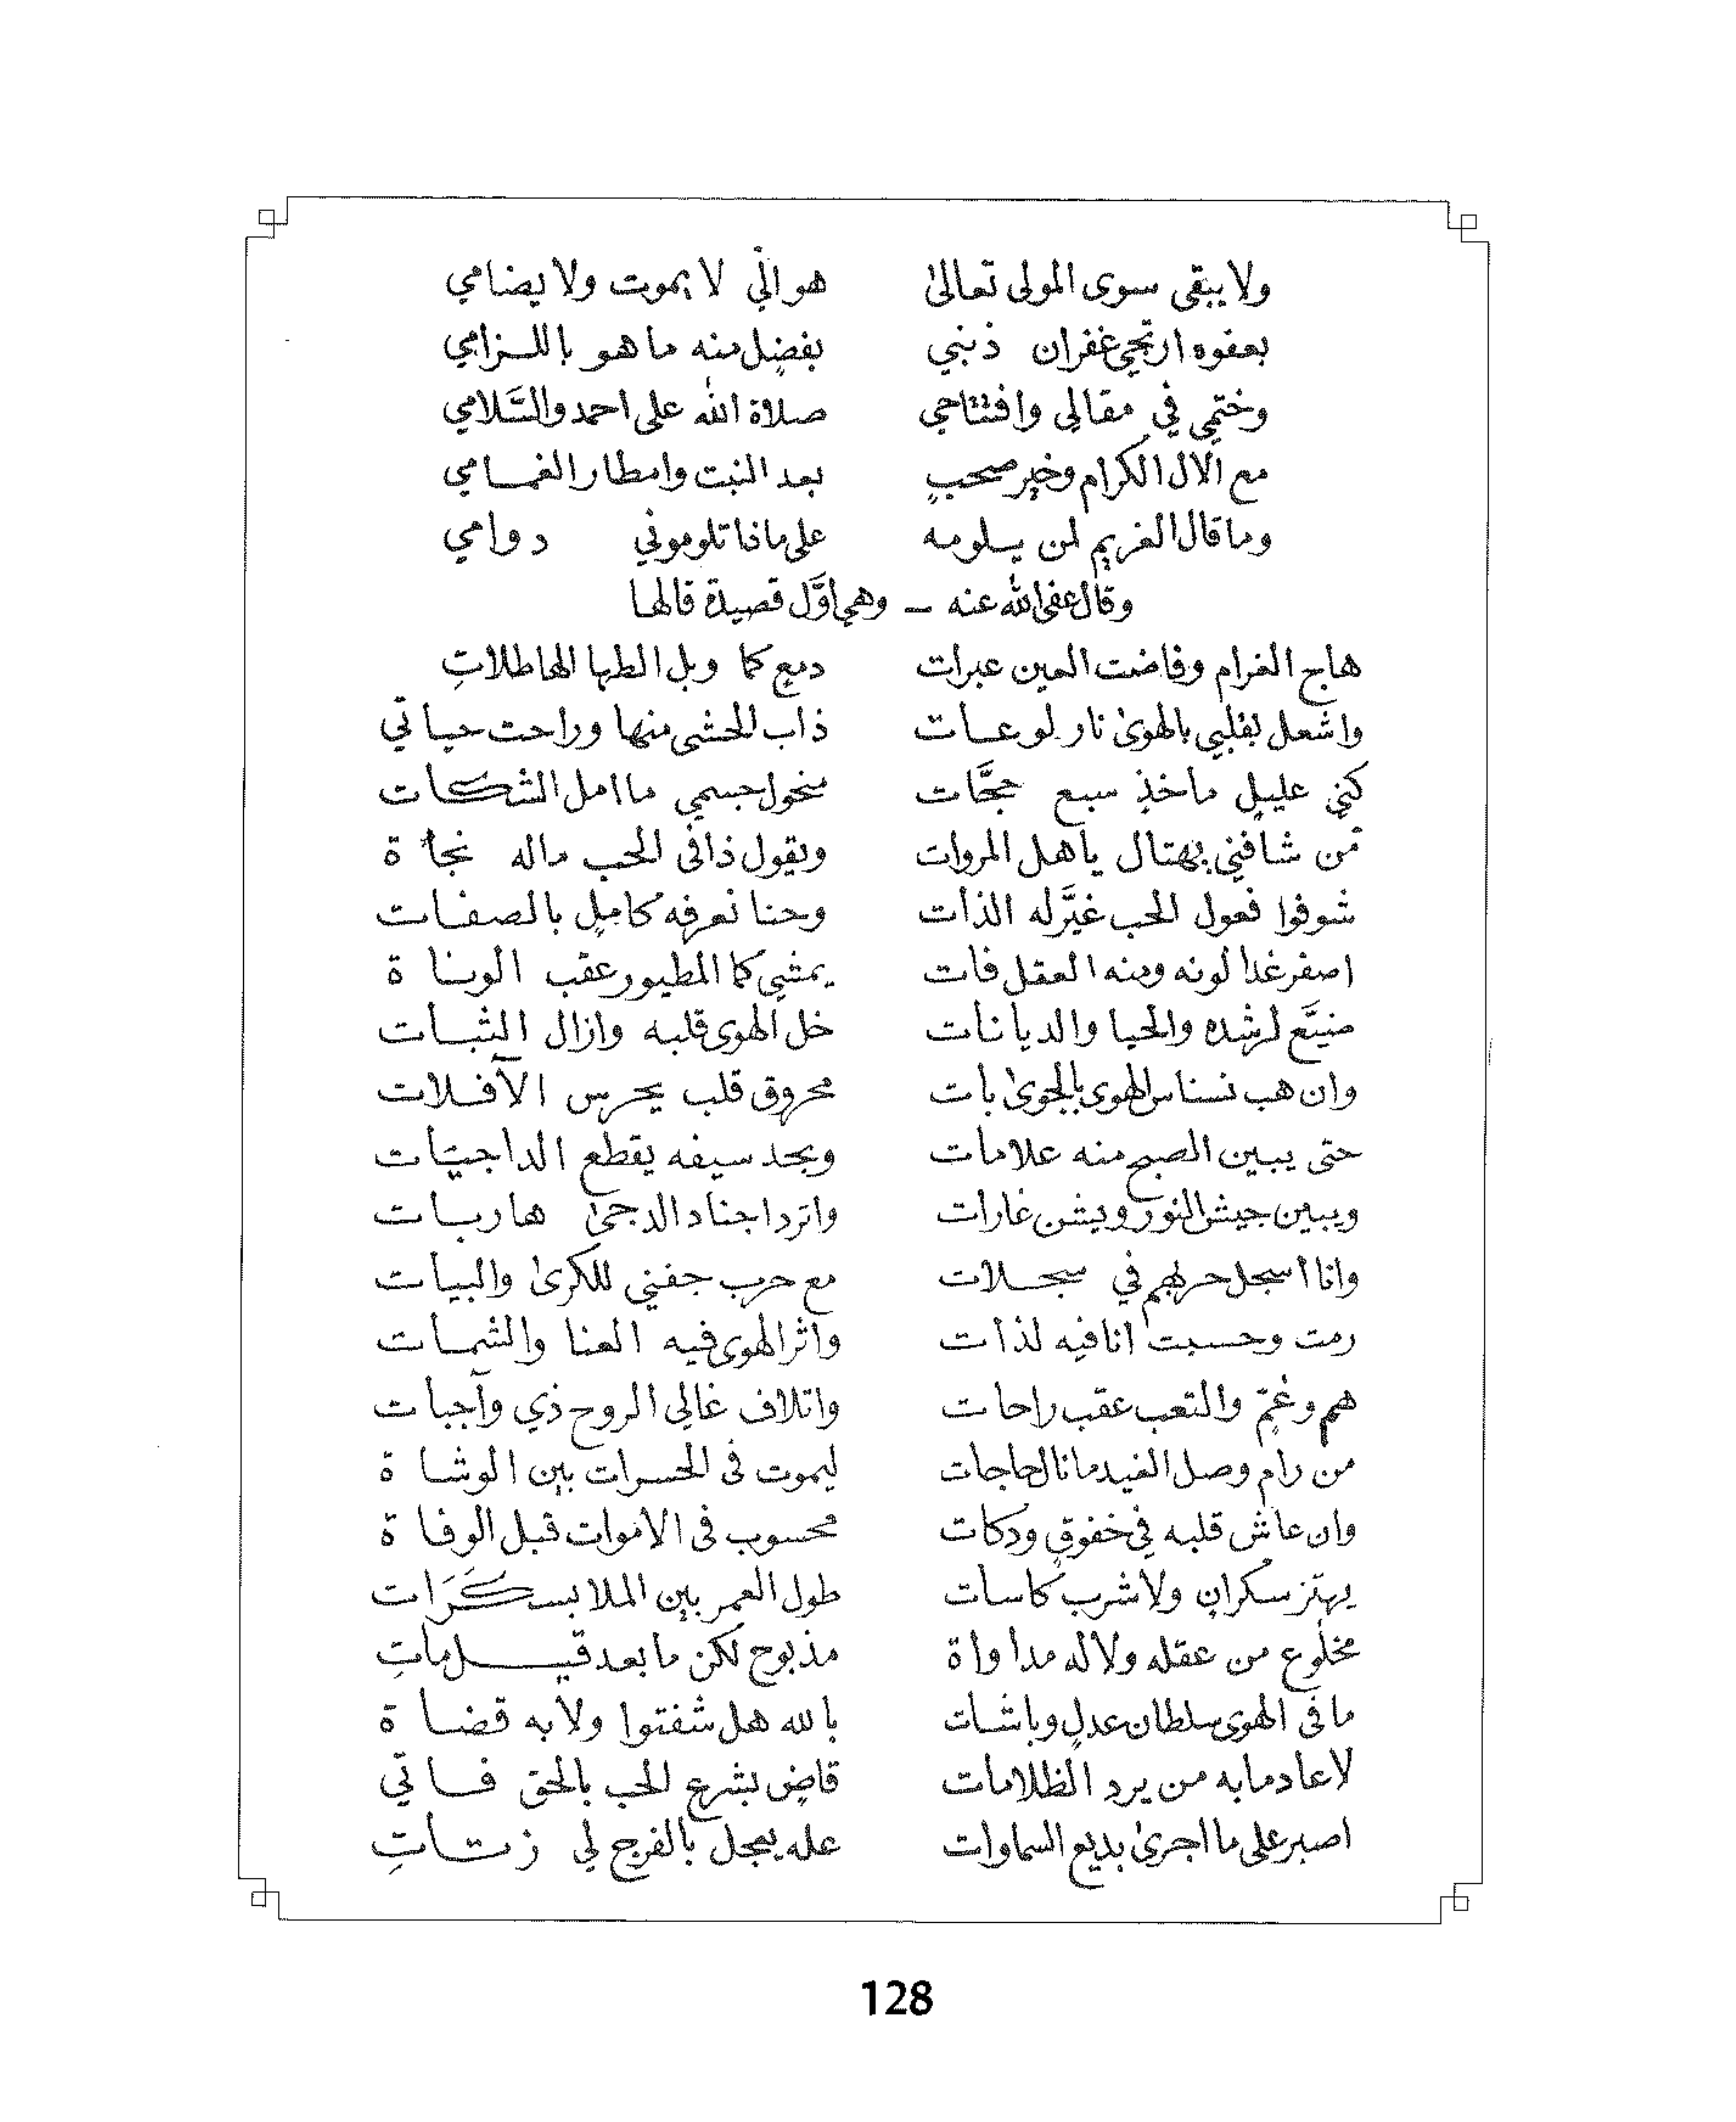 ولا يبقى سوى المولى تعالىٰ هو الّي لا يموت ولا يضامي
بعفوه ارتجي غفران ذنبي بفضلٍ منه ما هو باللـزامي
وختمي في مقالي وافتتاحي صلاة الله على احمد والسَّلامي
مع الآل الكرام وخير صحبٍ بعد النبت وامطار الغمـامي
وما قال الغريم لمن يلومه على ماذا تلوموني دوامي
وقال عفى الله عنه – وهي اوَّل قصيدة قالها
هاج الغرام وفاضت العين عبرات دمعٍ كما وبل الطها الهاطلاتِ
واشعل بقلبي بالهوىٰ نار لوعـات ذاب الحشى منها وراحت حياتي
كني عليلٍ ماخذٍ سبع حجَّات منحول جسمي ما امل الشكـات
مَن شافني بهتال ياهل المروات ويقول ذا فى الحب ماله نجاة
شوفوا فعول الحب غيَّر له الذات وحنا نعرفه كاملٍ بالصفـات
اصفر غدا لونه ومنه العقل فات يمشي كما المطيور عقب الونـاة
ضيَّع لرشده والحيا والديانات خل الهوى قلبه وازال الثبـات
وان هب نسناس الهوى بالجوىٰ بات محروق قلب يحرس الآفـلات
حتى يبين الصبح منه علامات وبحد سيفه يقطع الداجيّـات
ويبين جيش النور ويشن غارات واترد اجناد الدجىٰ هاربـات
وانا أسجل حربهم في سجـلات مع حرب جفني للكرىٰ والبيـات
رمت وحسبت انا فيه لذات واثر الهوى فيه العنا والشمـات
هم وغمٍّ والتعب عقب راحات واتلاف غالي الروح ذي واجبات
من رام وصل الغيد ما نال حاجات ليموت فى الحسرات بين الوشـاة
وان عاش قلبه في خفوقٍ ودكات محسوب فى الاموات قبل الوفـاة
يهتز سكرانٍ ولا شرب كاسات طول العمر بين الملا بسكَـرَات
مخلوع من عقله ولا له مداواة مذبوح لكن ما بعد قيـل ماتِ
ما فى الهوى سلطان عدلٍ وباشات بالله هل شفتوا ولا به قضـاة
لا عاد ما به من يرد الظلامات قاضٍ بشرع الحب بالحق فـاتي
اصبر على ما اجرىٰ بديع السماوات عله يعجل بالفرج لي زتـاتِ
128